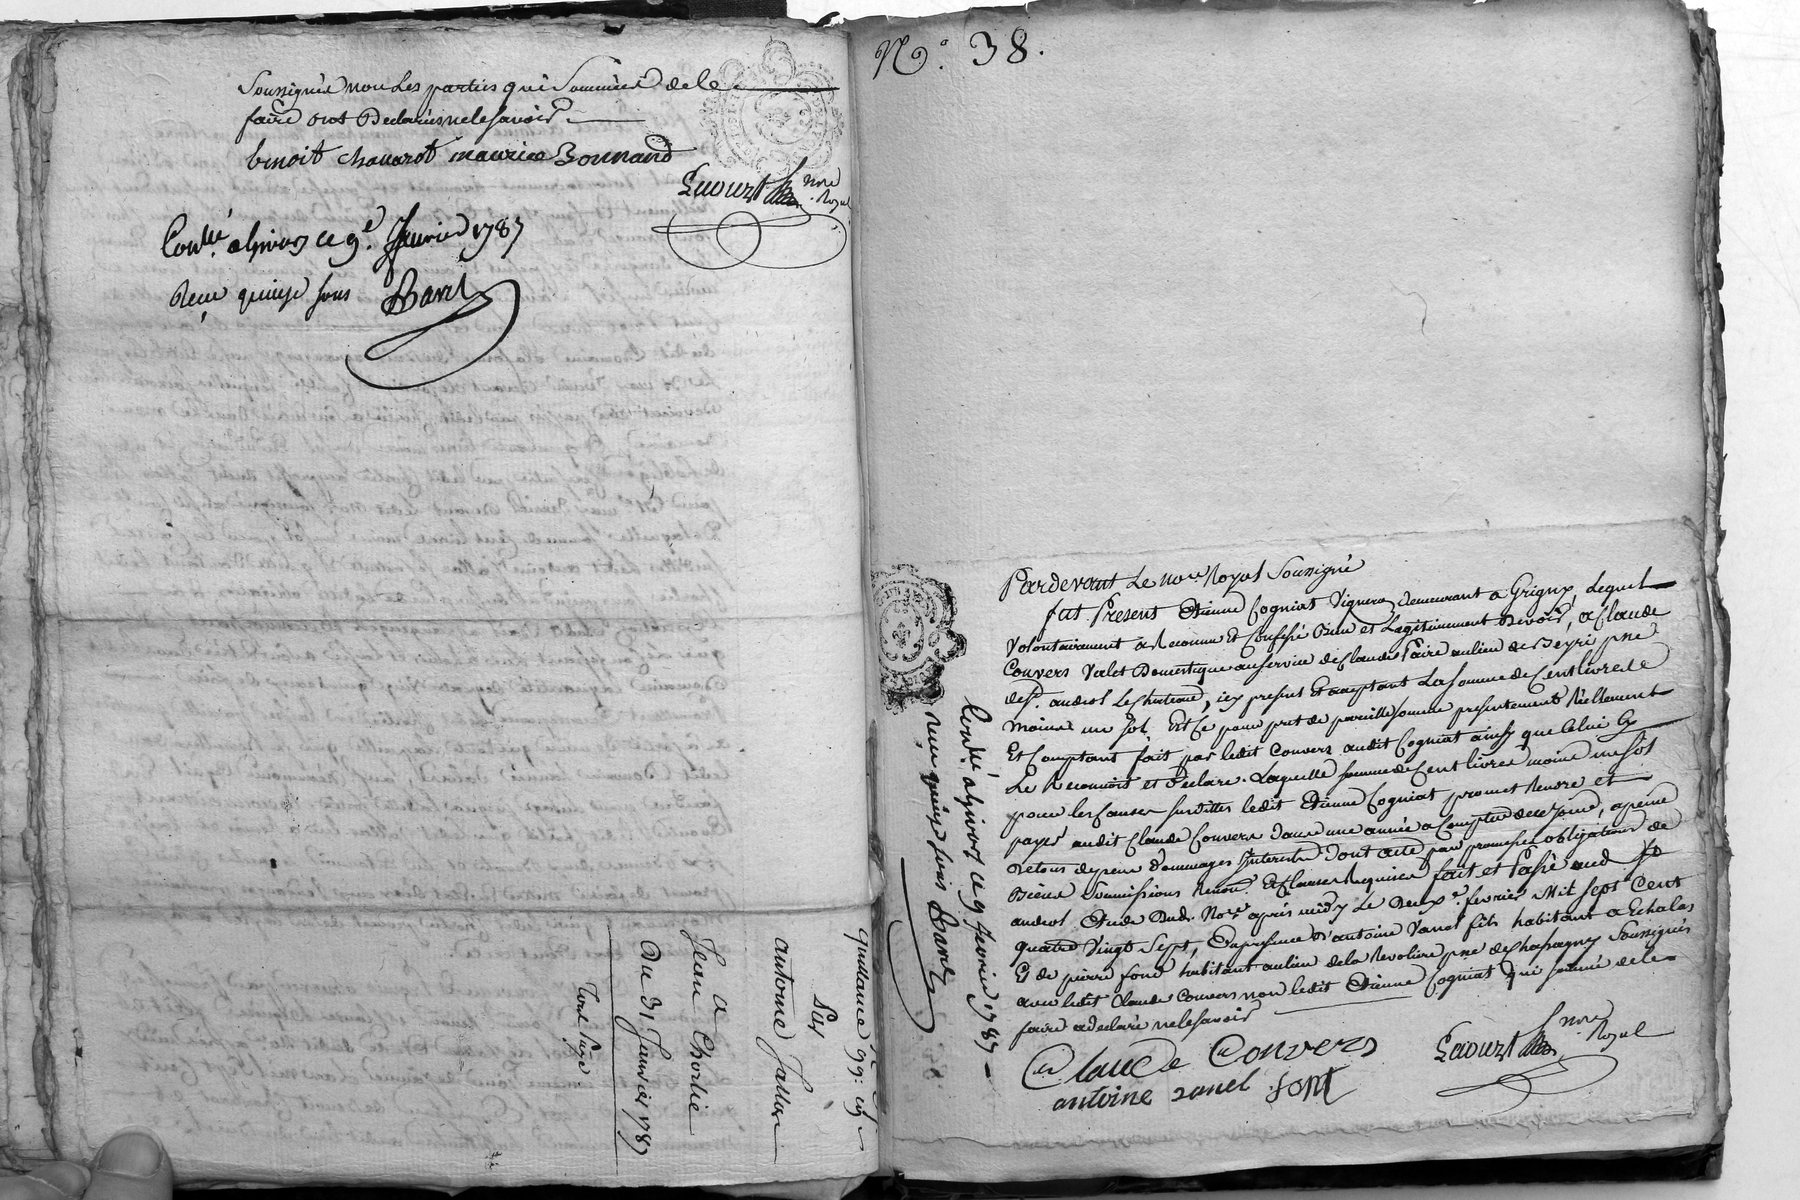 Soussignés non Les parties qui Sommées de le
faire ont Declarés ne le savoir
benoit chavarot maurice Bonnand
Laourst nore Royal
Conllé a Givors ce 9e. Janvier 1787
Reçu quinze sous Barel
quittance 99: 19s
Par
antoine Jallon
a
Jean Chorlie
Du 31 Janvier 1787
N.o 38.
Pardevant Le nore Royal Soussigné
fut Present Etienne Cogniat Vigneron demeurant a Grigny, Lequel
Volontairement a Reconnu Et Confessé Bien et Legitimement Devoir, a Claude
Convers Valet Domestique au service de Claude Faire au lieu de psse
de St. andeol Le Chateau, icy present Et acceptant La somme de Cent livres
moins un sol, Et Ce pour pret de pareille somme presentement Réellement
Et Comptant fait par ledit Convers audit Cogniat ainsy que Celui Cy
Le Reconnoit et Declare. Laquelle somme de Cent livres moins un sol
pour les Causes susdittes ledit Etienne Cogniat promet Rendre et
payer audit Claude Convers dans une année a Compter de ce jour, a peine
de tous depens Dommages Interests Dont acte par promesses obligations de
Biens Soumissions Renon. Et Clauses Requises fait et Passé aud St
andeol Etude Dud. Nore après midy Le Deuxe. fevrier Mil sept Cent
quatre Vingt Sept, En presence D'antoine Vanel fils habitant a Echalas
Et de pierre fond habitant au lieu de la Revoliere psse de Chassagny Soussignés
avec ledit Claude Convers non ledit Etienne Cogniat qui sommé de le
faire a declaré ne le savoir
Claude Convers
Laourst nore Royal
antoine vanel font
Conllé a Givors ce 9 fevrier 1787
Reçu quinze sous Barel